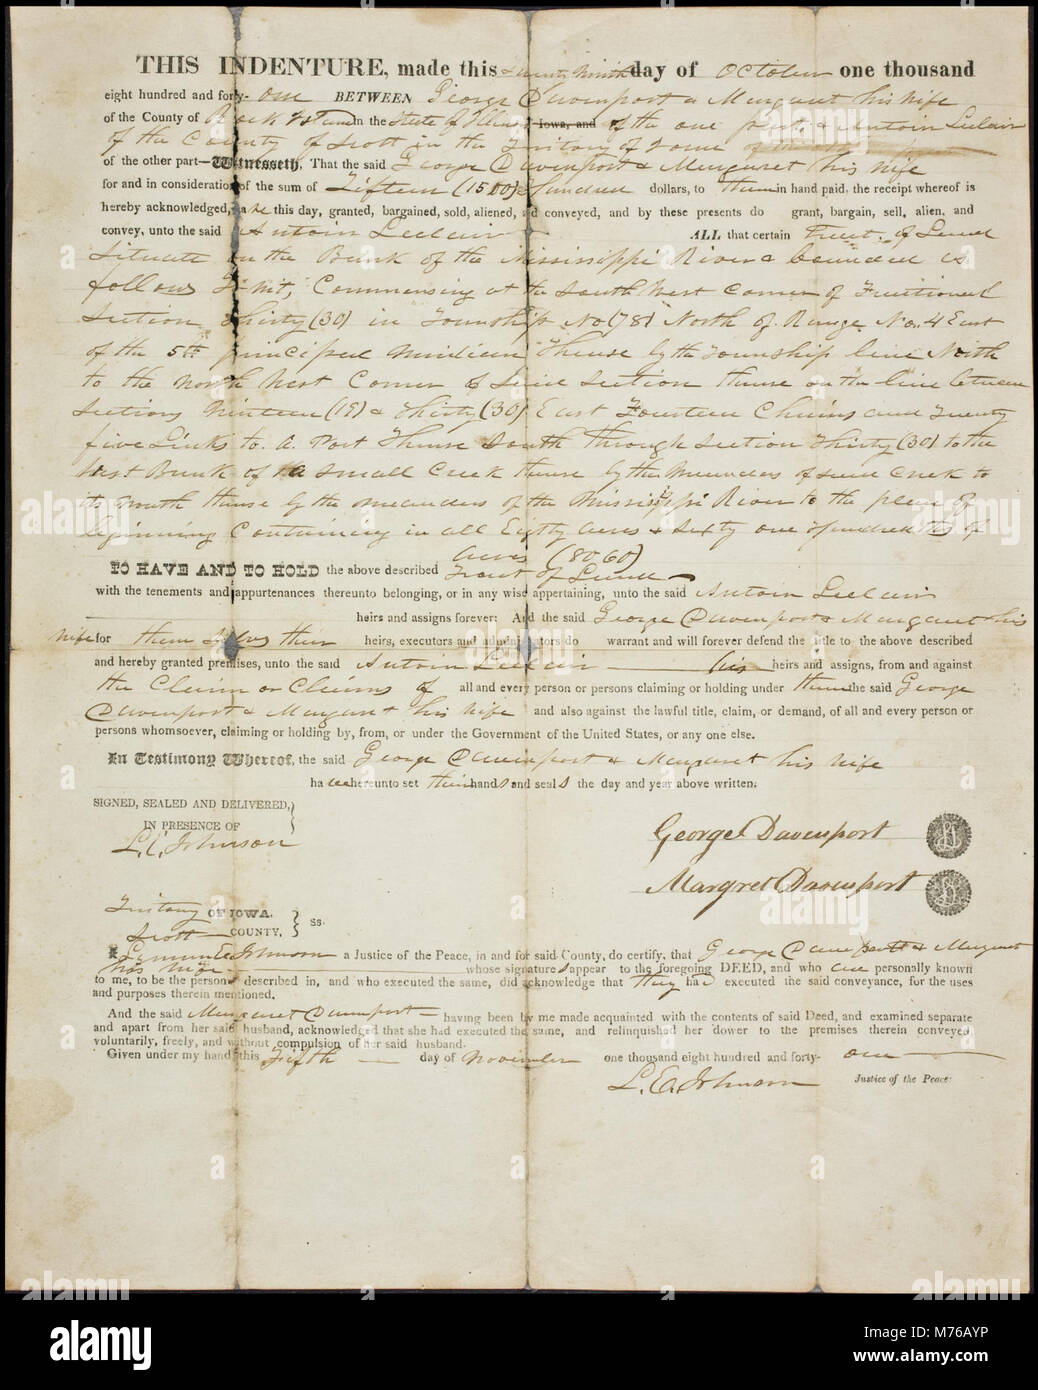 THIS INDENTURE, made this twenty ninth day of October one thousand
eight hundred and forty- one BETWEEN George Davenport & Margaret his wife
of the County of Rock Island in the State of Illinois Iowa, and of the one part, & Antoin Leclair
of the County of Scott in the Territory of Iowa
of the other part—Witnesseth, That the said George Davenport & Margaret his wife
for and in consideration of the sum of Fifteen (1500) Hundred dollars, to them in hand paid, the receipt whereof is
hereby acknowledged, have this day, granted, bargained, sold, aliened, and conveyed, and by these presents do grant, bargain, sell, alien, and
convey, unto the said Antoin Leclair ALL that certain Tract of Land
Situate on the Bank of the Mississippi River & bounded as
follows To wit, Commencing at the South West Corner of Fractional
Section Thirty (30) in Township No (78) North of Range No. 4 East
of the 5th principal Meridian Thense by the Township line North
to the North West Corner of Said Section thense on the line between
Sections Nineteen (19) & Thirty (30) East Fourteen Chains and Twenty
five Links to a Post Thense South through Section Thirty (30) to the
West Bank of a Small Creek thense by the Meanders of said Creek to
its mouth thense by the meanders of the Mississippi River to the place of
beginning Containing in all Eighty acres & Sixty one hundredths of
acres (80,60)
TO HAVE AND TO HOLD the above described Tract of Land
with the tenements and appurtenances thereunto belonging, or in any wise appertaining, unto the said Antoin Leclair
heirs and assigns forever: And the said George Davenport & Margaret his
wife for them selves their heirs, executors and administrators do warrant and will forever defend the title to the above described
and hereby granted premises, unto the said Antoin Leclair his heirs and assigns, from and against
the Claim or Claims of all and every person or persons claiming or holding under them the said George
Davenport & Margaret his wife and also against the lawful title, claim, or demand, of all and every person or
persons whomsoever, claiming or holding by, from, or under the Government of the United States, or any one else.
In Testimony Whereof, the said George Davenport & Margaret his wife
have hereunto set their hands and seals the day and year above written.
SIGNED, SEALED AND DELIVERED,
IN PRESENCE OF
L. E. Johnson
George Davenport
Margret Davenport
Territory OF IOWA.
Scott COUNTY, } ss.
I Lemuel E Johnson a Justice of the Peace, in and for said County, do certify, that George Davenport & Margaret
his wife whose signatures appear to the foregoing DEED, and who are personally known
to me, to be the persons described in, and who executed the same, did acknowledge that they had executed the said conveyance, for the uses
and purposes therein mentioned.
And the said Margaret Davenport having been by me made acquainted with the contents of said Deed, and examined separate
and apart from her said husband, acknowledged that she had executed the same, and relinquished her dower to the premises therein conveyed
voluntarily, freely, and without compulsion of her said husband.
Given under my hand this Fifth day of November one thousand eight hundred and forty- one
L. E. Johnson Justice of the Peace.
alamy
a
alamy
M76AYP
www.alamy.com